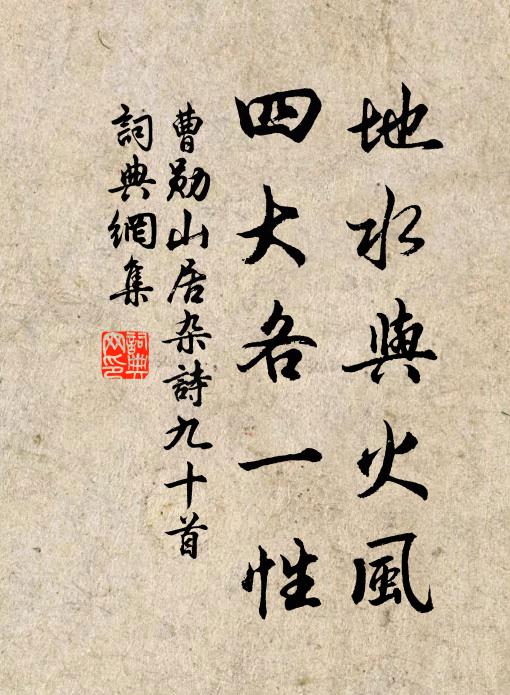 地水與火風
四大各一性
曹勛山居杂詩九十首
詞典網集
詞典網印